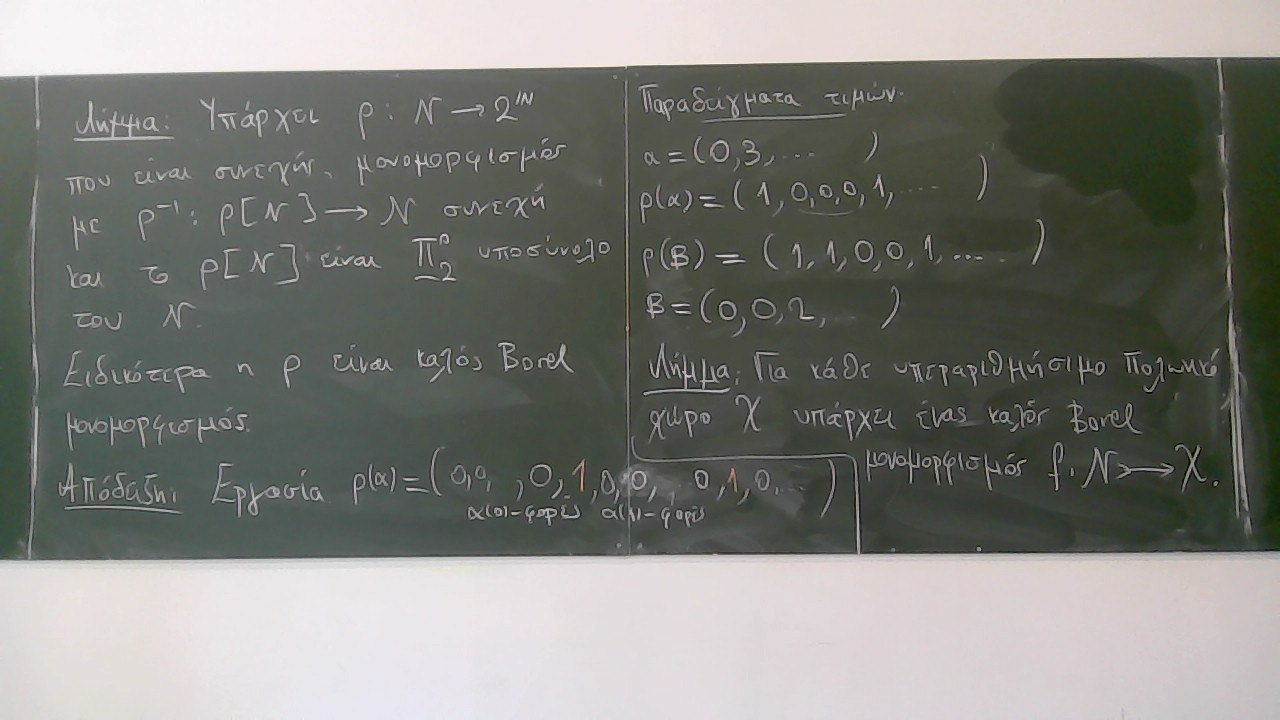 Λήμμα: Υπάρχει ρ: 𝒩 → 2^ℕ
που είναι συνεχής, μονομορφισμός
με ρ⁻¹: ρ[𝒩] → 𝒩 συνεχή
και το ρ[𝒩] είναι Π⁰₂ υποσύνολο
του 𝒩.
Ειδικότερα η ρ είναι καλός Borel
μονομορφισμός.
Απόδειξη: Εργασία ρ(α) = (0,0, ,0,1,0,0, , 0,1,0,... )
α(0)-φορές α(1)-φορές
Παραδείγματα τιμών.
α = (0,3,... )
ρ(α) = (1,0,0,0,1,.... )
ρ(β) = (1,1,0,0,1,.... )
β = (0,0,2,. )
Λήμμα: Για κάθε υπεραριθμήσιμο Πολωνικό
χώρο 𝒳 υπάρχει ένας καλός Borel
μονομορφισμός f: 𝒩 ↣ 𝒳.